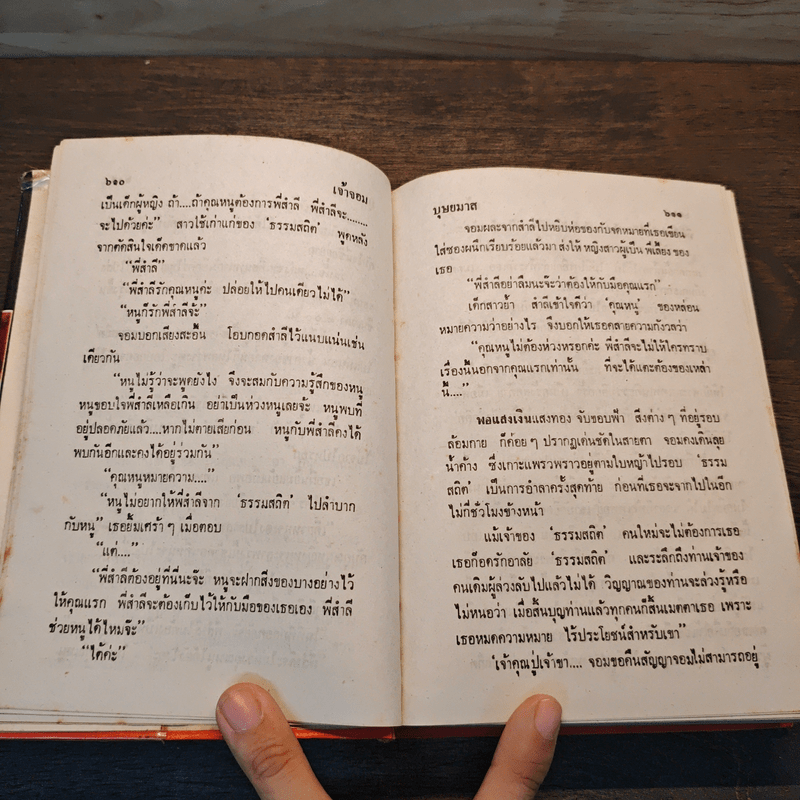 ๖๑๐
เจ้าจอม
เป็นเด็กผู้หญิง ถ้า....ถ้าคุณหนูต้องการพี่สำลี พี่สำลีจะ........
จะไปด้วยค่ะ” สาวใช้เก่าแก่ของ ‘ธรรมสถิต’ พูดหลัง
จากตัดสินใจเด็ดขาดแล้ว
“พี่สำลี”
“พี่สำลีรักคุณหนูค่ะ ปล่อยให้ไปคนเดียวไม่ได้”
“หนูก็รักพี่สำลีจ้ะ”
จอมบอกเสียงสะอื้น โอบกอดสำลีไว้แนบแน่นเช่น
เดียวกัน
“หนูไม่รู้ว่าจะพูดยังไง จึงจะสมกับความรู้สึกของหนู
หนูขอบใจพี่สำลีเหลือเกิน อย่าเป็นห่วงหนูเลยจ้ะ หนูพบที่
อยู่ปลอดภัยแล้ว....หากไม่ตายเสียก่อน หนูกับพี่สำลีคงได้
พบกันอีกและคงได้อยู่ร่วมกัน”
“คุณหนูหมายความ....”
“หนูไม่อยากให้พี่สำลีจาก ‘ธรรมสถิต’ ไปลำบาก
กับหนู” เธอยิ้มเศร้า ๆ เมื่อตอบ
“แต่....”
“พี่สำลีต้องอยู่ที่นี่นะจ๊ะ หนูจะฝากสิ่งของบางอย่างไว้
ให้คุณแรก พี่สำลีจะต้องเก็บไว้ให้กับมือของเธอเอง พี่สำลี
ช่วยหนูได้ไหมจ๊ะ”
“ได้ค่ะ”
บุษยมาส
๖๑๑
จอมผละจากสำลีไปหยิบห่อของกับจดหมายที่เธอเขียน
ใส่ซองผนึกเรียบร้อยแล้วมา ส่งให้ หญิงสาวผู้เป็น พี่เลี้ยง ของ
เธอ
“พี่สำลีอย่าลืมนะจ๊ะว่าต้องให้กับมือคุณแรก”
เด็กสาวย้ำ สำลีเข้าใจดีว่า ‘คุณหนู’ ของหล่อน
หมายความว่าอย่างไร จึงบอกให้เธอคลายความกังวลว่า
“คุณหนูไม่ต้องห่วงหรอกค่ะ พี่สำลีจะไม่ให้ใครทราบ
เรื่องนี้นอกจากคุณแรกเท่านั้น ที่จะได้แตะต้องของเหล่า
นี้....”
พอแสงเงินแสงทอง จับขอบฟ้า สิ่งต่าง ๆ ที่อยู่รอบ
ล้อมกาย ก็ค่อย ๆ ปรากฏเด่นชัดในสายตา จอมคงเดินลุย
น้ำค้าง ซึ่งเกาะแพรวพราวอยู่ตามใบหญ้าไปรอบ ‘ธรรม
สถิต’ เป็นการอำลาครั้งสุดท้าย ก่อนที่เธอจะจากไปในอีก
ไม่กี่ชั่วโมงข้างหน้า
แม้เจ้าของ ‘ธรรมสถิต’ คนใหม่จะไม่ต้องการเธอ
เธอก็อดรักอาลัย ‘ธรรมสถิต’ และระลึกถึงท่านเจ้าของ
คนเดิมผู้ล่วงลับไปแล้วไม่ได้ วิญญาณของท่านจะล่วงรู้หรือ
ไม่หนอว่า เมื่อสิ้นบุญท่านแล้วทุกคนก็สิ้นเมตตาเธอ เพราะ
เธอหมดความหมาย ไร้ประโยชน์สำหรับเขา”
‘เจ้าคุณปู่เจ้าขา.... จอมขอคืนสัญญาจอมไม่สามารถอยู่